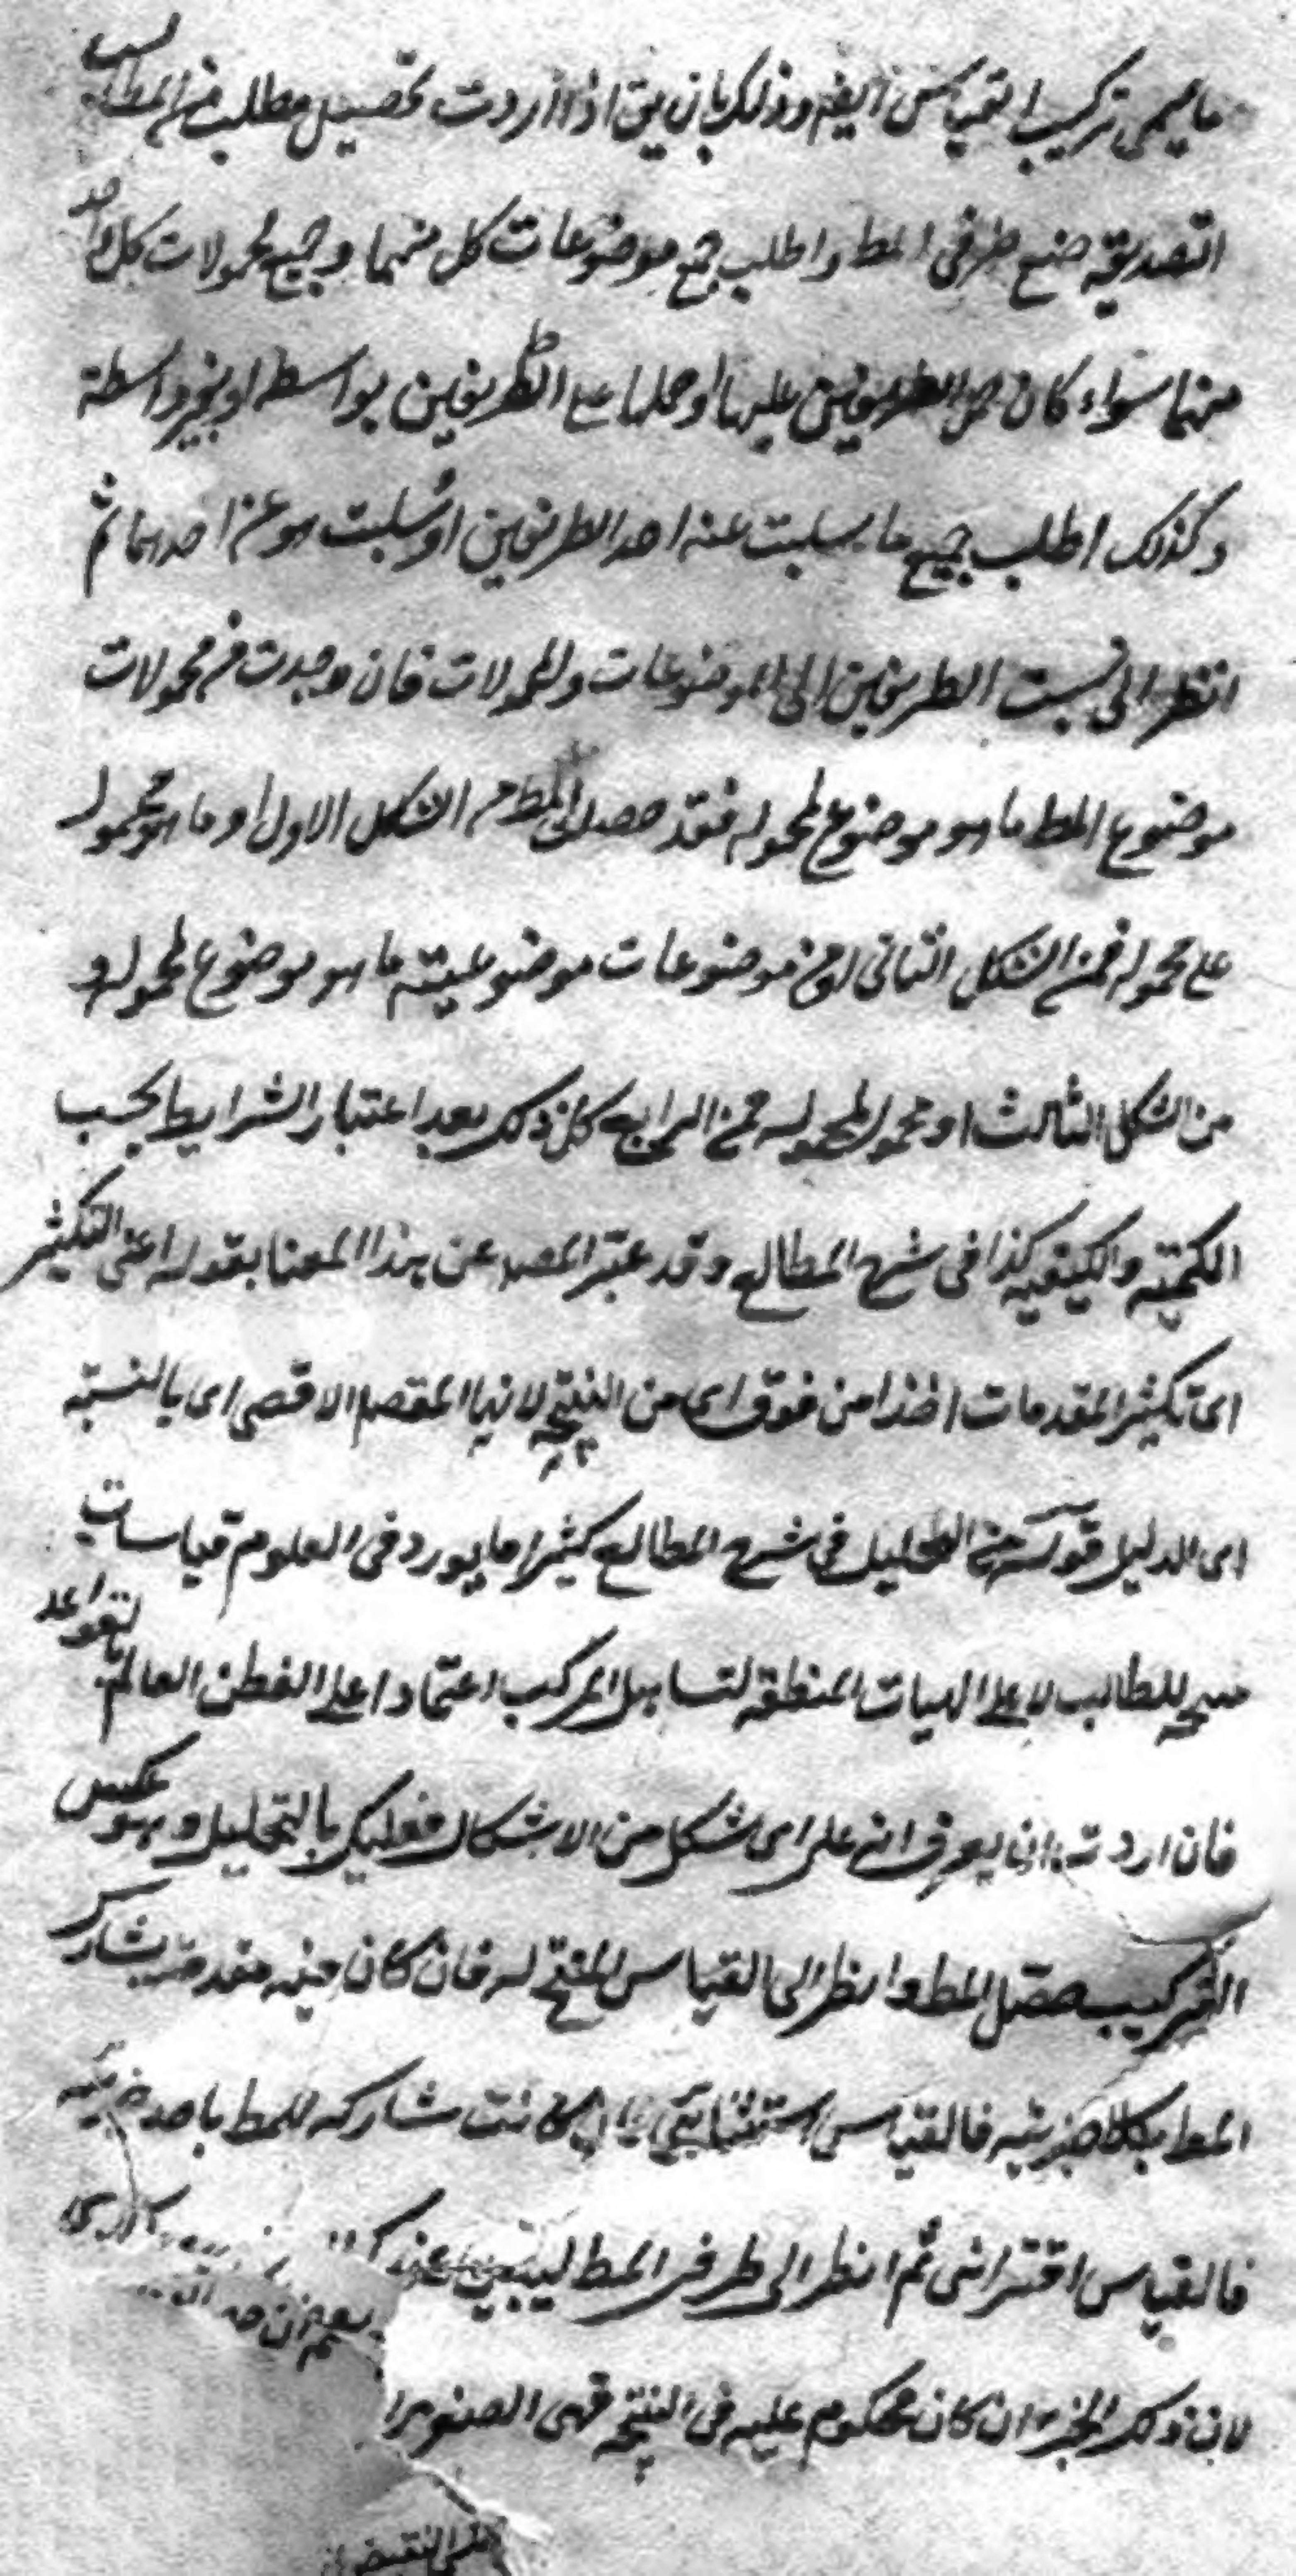 ما يسمى تركيب القياس ايضا وذلك بان يق اذا اردت تحصيل مطلب من المطالب
التصديقيه ضع طرفي المط واطلب جميع موضوعات كل منهما وجميع محمولات كل واحد
منهما سواء كان حمل الطرفين عليها او حملها على الطرفين بواسطه او بغير واسطة
وكذلك اطلب جميع ما سلبت عنه احد الطرفين او سلبت هو عن احدهما ثم
انظر الى نسبت الطرفين الى الموضوعات والمحمولات فان وجدت من محمولات
موضوع المط ما هو موضوع لمحموله فقد حصل المط من الشكل الاول او ما هو محمول
على محموله فمن الشكل الثاني او من موضوعات موضوعيته ما هو موضوع لمحموله و
من الشكل الثالث او محمول لمحموله فمن الرابع كل ذلك بعد اعتبار الشرايط بحسب
الكميته والكيفيه كذا في شرح المطالع وقد عبر المص عن هذا المعنا بقوله اعني التكثير
اى تكثير المقدمات اخذا من فوق اى من النتيجه لانها المقصد الاقصى اى بالنسبة
اى الدليل قوله من التحليل في شرح المطالع كثيرا ما يورد في العلوم قياسات
منتجه للطالب لا على الهيات المنطقه لتساهل المركب اعتمادا على الفطن العالم بالقواعد
فان اردت ان يعرف انه على اى شكل من الاشكال فعليك بالتحليل وهو عكس
التركيب حصل المط وانظر الى القياس المنتج له فان كان فيه مقدمة يشارك
المط بكلا جزئيه فالقياس استثنائي وان كانت مشاركه للمط باحد جزئيه
فالقياس اقتراني ثم انظر الى طرفي المط ليتبين عندك
لان ذلك الجزء ان كان محكوم عليه في النتيجه فهى الصغرى